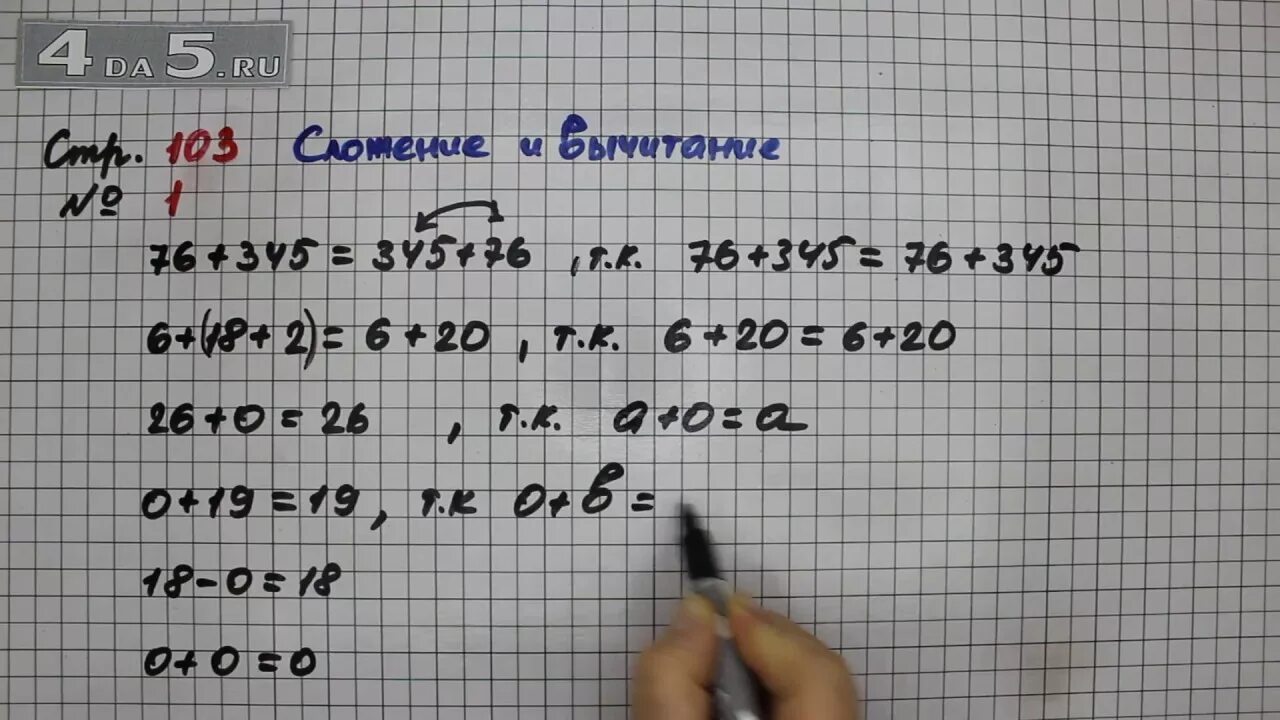 4DA5.RU
Стр. 103 Сложение и вычитание
№ 1
76+345=345+76, т.к. 76+345=76+345
6+(18+2)=6+20, т.к. 6+20=6+20
26+0=26, т.к. a+0=a
0+19=19, т.к 0+в=
18-0=18
0+0=0